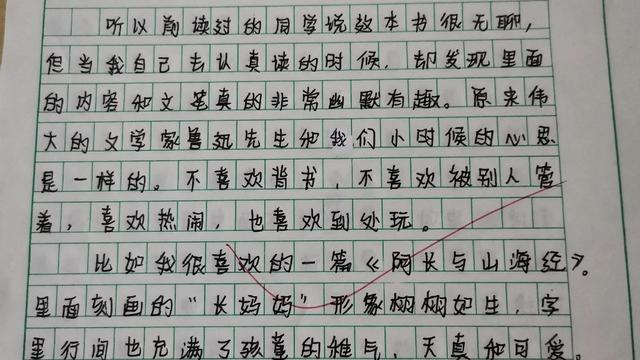 听以前读过的同学说这本书很无聊，
但当我自己去认真读的时候，却发现里面
的内容和文笔真的非常幽默有趣。原来伟
大的文学家鲁迅先生和我们小时候的心思
是一样的。不喜欢背书，不喜欢被别人管
着，喜欢热闹，也喜欢到处玩。
比如我很喜欢的一篇《阿长与山海经》。
里面刻画的“长妈妈”形象栩栩如生，字
里行间也充满了孩童的稚气，天真和可爱。